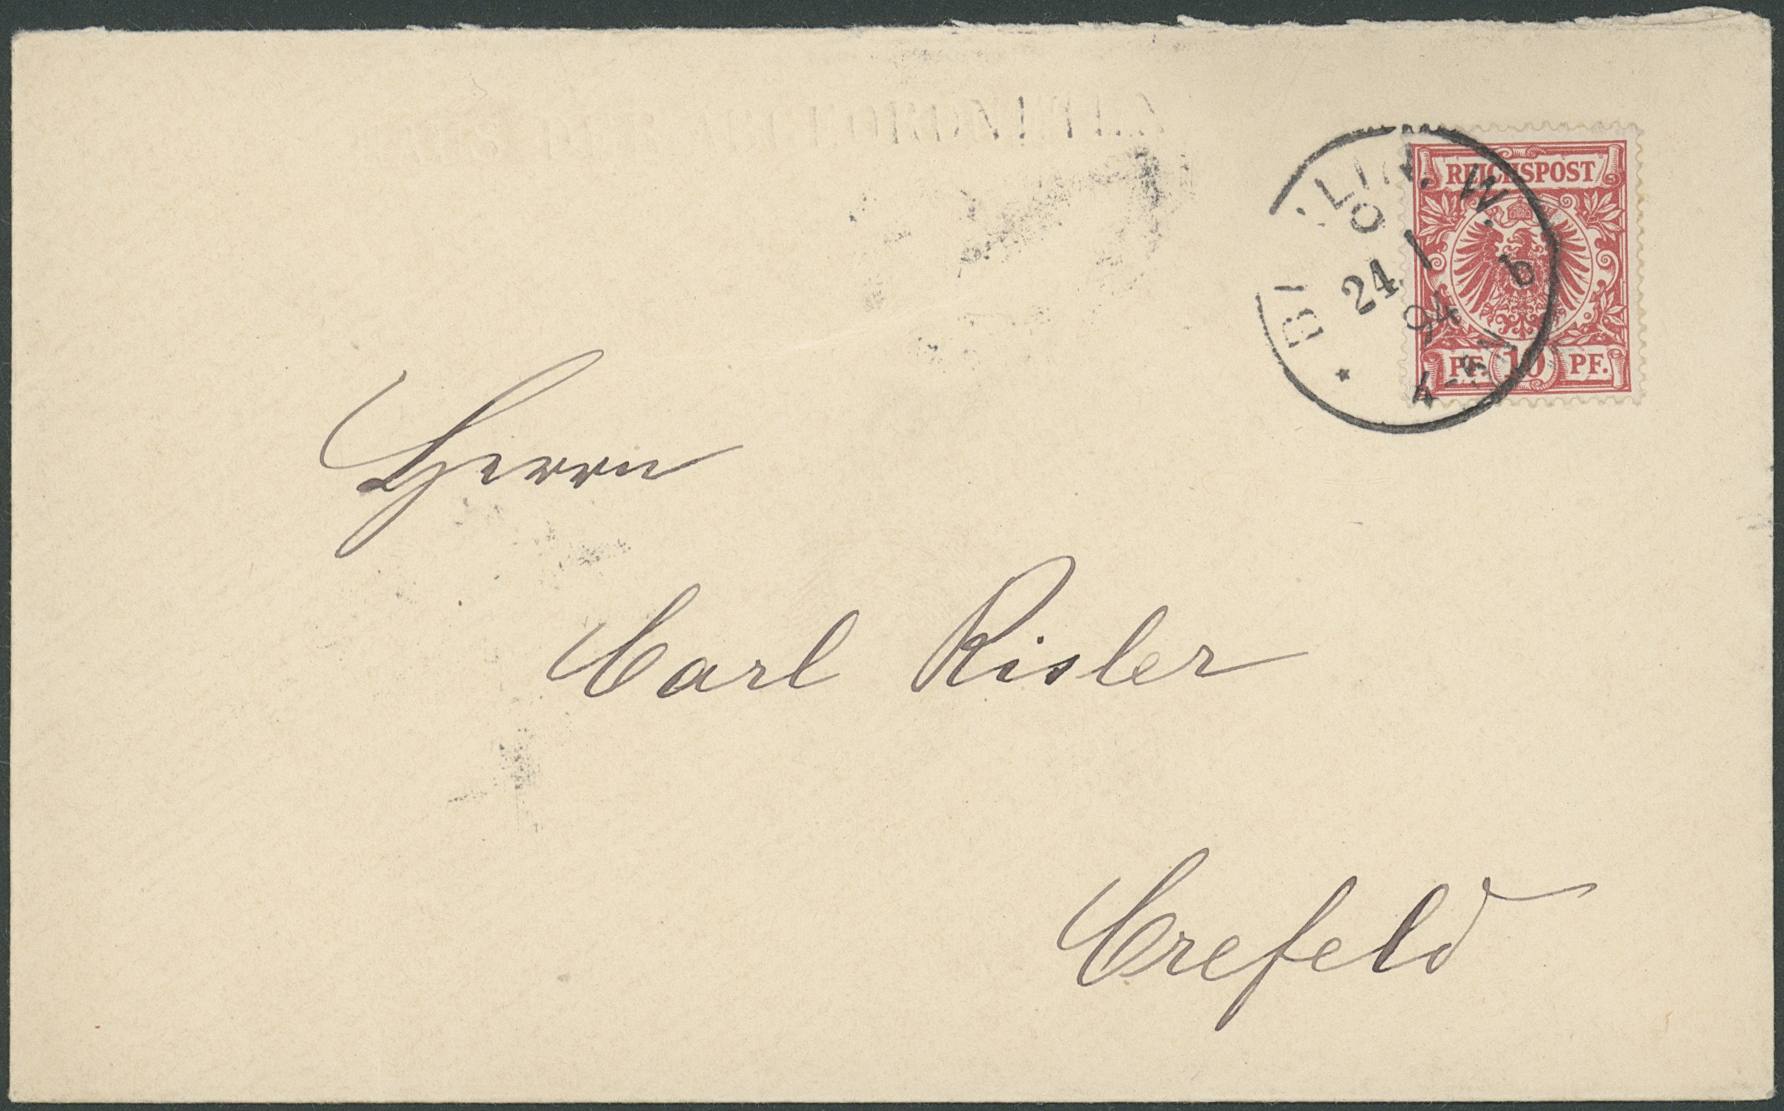 HAUS DER ABGEORDNETEN
REICHSPOST
PF. 10 PF.
BERLIN. W.
9
24. 1
94
4-5N
b
Herrn
Carl Risler
Crefeld